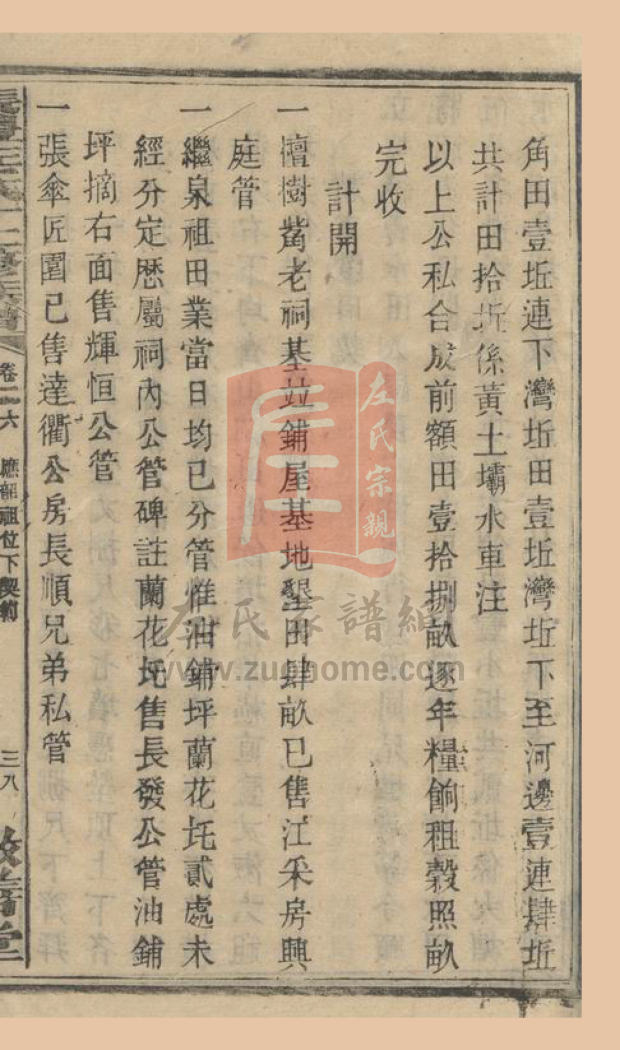 角田壹坵連下灣坵田壹坵灣坵下至河邊壹連肆坵
共計田拾坵係黃土壩水車注
以上公私合成前額田壹拾捌畝逐年糧餉租穀照畝
完收
計開
一檀樹嵛老祠基竝鋪屋基地墾田肆畝已售江采房興
庭管
一繼泉祖田業當日均已分管惟油鋪坪蘭花圫貳處未
經分定歷屬祠內公管碑註蘭花圫售長發公管油鋪
坪摘右面售輝恒公管
一張傘匠園已售達衢公房長順兄弟私管
氏三修族譜
卷二六
應韶祖位下契約
三八
敦善堂
左氏宗親
左氏家譜網
www.zuohome.com